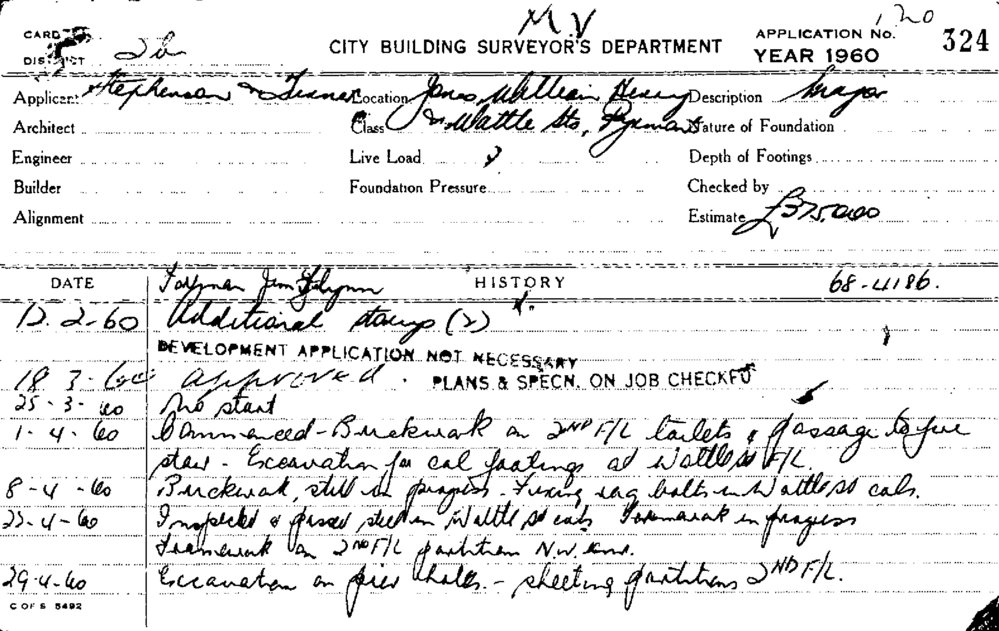 M.V
CARD
DISTRICT 2b
CITY BUILDING SURVEYOR'S DEPARTMENT
APPLICATION No. 324
YEAR 1960
120
Applicant Stephenson & Turner Location Jones, William Henry Description Major
Architect Class & Wattle Sts, Pyrmont Nature of Foundation
Engineer Live Load Depth of Footings
Builder Foundation Pressure Checked by
Alignment Estimate £375,000
DATE Foreman Jim Flynn HISTORY 68-4186.
12.2-60 Additional stamps (2)
DEVELOPMENT APPLICATION NOT NECESSARY
18 3-60 approved. PLANS & SPECN. ON JOB CHECKED
25-3-60 No start
1-4-60 Commenced - Brickwork on 2ND F/L toilets & passage to fire
stair - Excavation for col footings at Wattle St F/L.
8-4-60 Brickwork, still in progress - Fixing rag bolts in Wattle St cols.
22-4-60 Inspected & passed steel in Wattle St cols Formwork in progress
Framework on 2ND F/L partition N.W. end.
29-4-60 Excavation on pier holes - sheeting partitions 2ND F/L.
C OF S 5492